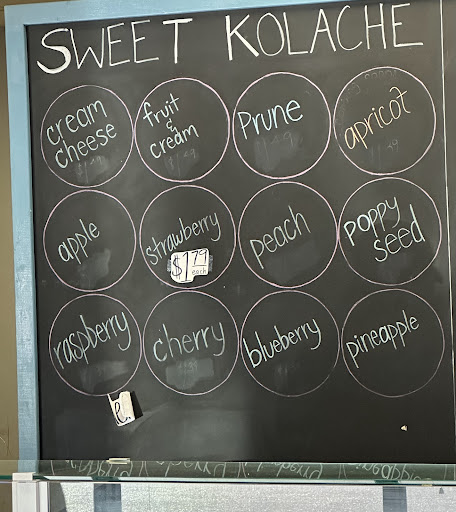 SWEET KOLACHE
cream
cheese
fruit
&
cream
Prune
apricot
apple
strawberry
$1.79
each
peach
poppy
seed
raspberry
cherry
blueberry
pineapple